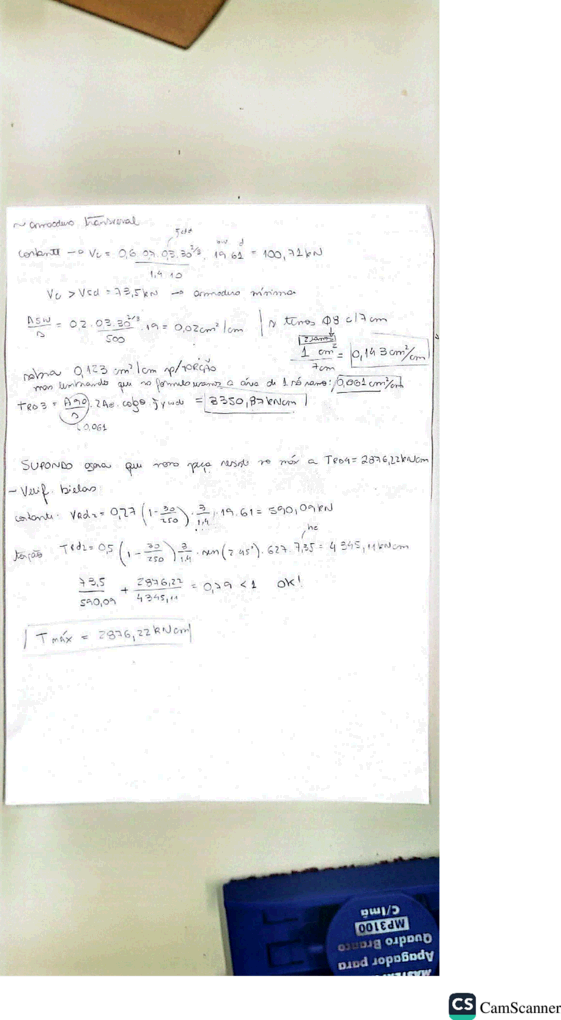 ~ armadura transversal
fctd
cortante → Vc = 0,6 . 0,7 . 0,3 . 30^2/3 . 19 . 61 = 100,71 kN
bw d
1,4 . 10
Vc > Vsd = 73,5 kN → armadura mínima
Asw/s = 0,2 . 0,3 . 30^2/3 . 19 = 0,02 cm²/cm | → temos Φ8 c/7cm
500
2 ramos
1 cm²/7cm = 0,143 cm²/cm
sobra 0,123 cm²/cm p/ torção
mas lembrando que na fórmula usamos a área de 1 só ramo: 0,061 cm²/cm
TRD3 = (A90/s) . 2Ae . cotgθ . fywd = 2350,87 kNcm
0,061
SUPONDO agora que nossa peça resiste no máx a TRD4 = 2876,22 kNcm
- Verif. bielas
cortante: VRd2 = 0,27 (1 - 30/250) . 3/1,4 . 19 . 61 = 590,09 kN
he
torção TRd2 = 0,5 (1 - 30/250) 3/1,4 . sen(2.45°) . 627 . 7,35 = 4345,11 kNcm
73,5/590,09 + 2876,22/4345,11 = 0,79 < 1 OK!
Tmáx = 2876,22 kNcm
MASTER
Apagador para
Quadro Branco
MP3100
C/Imã
CS CamScanner